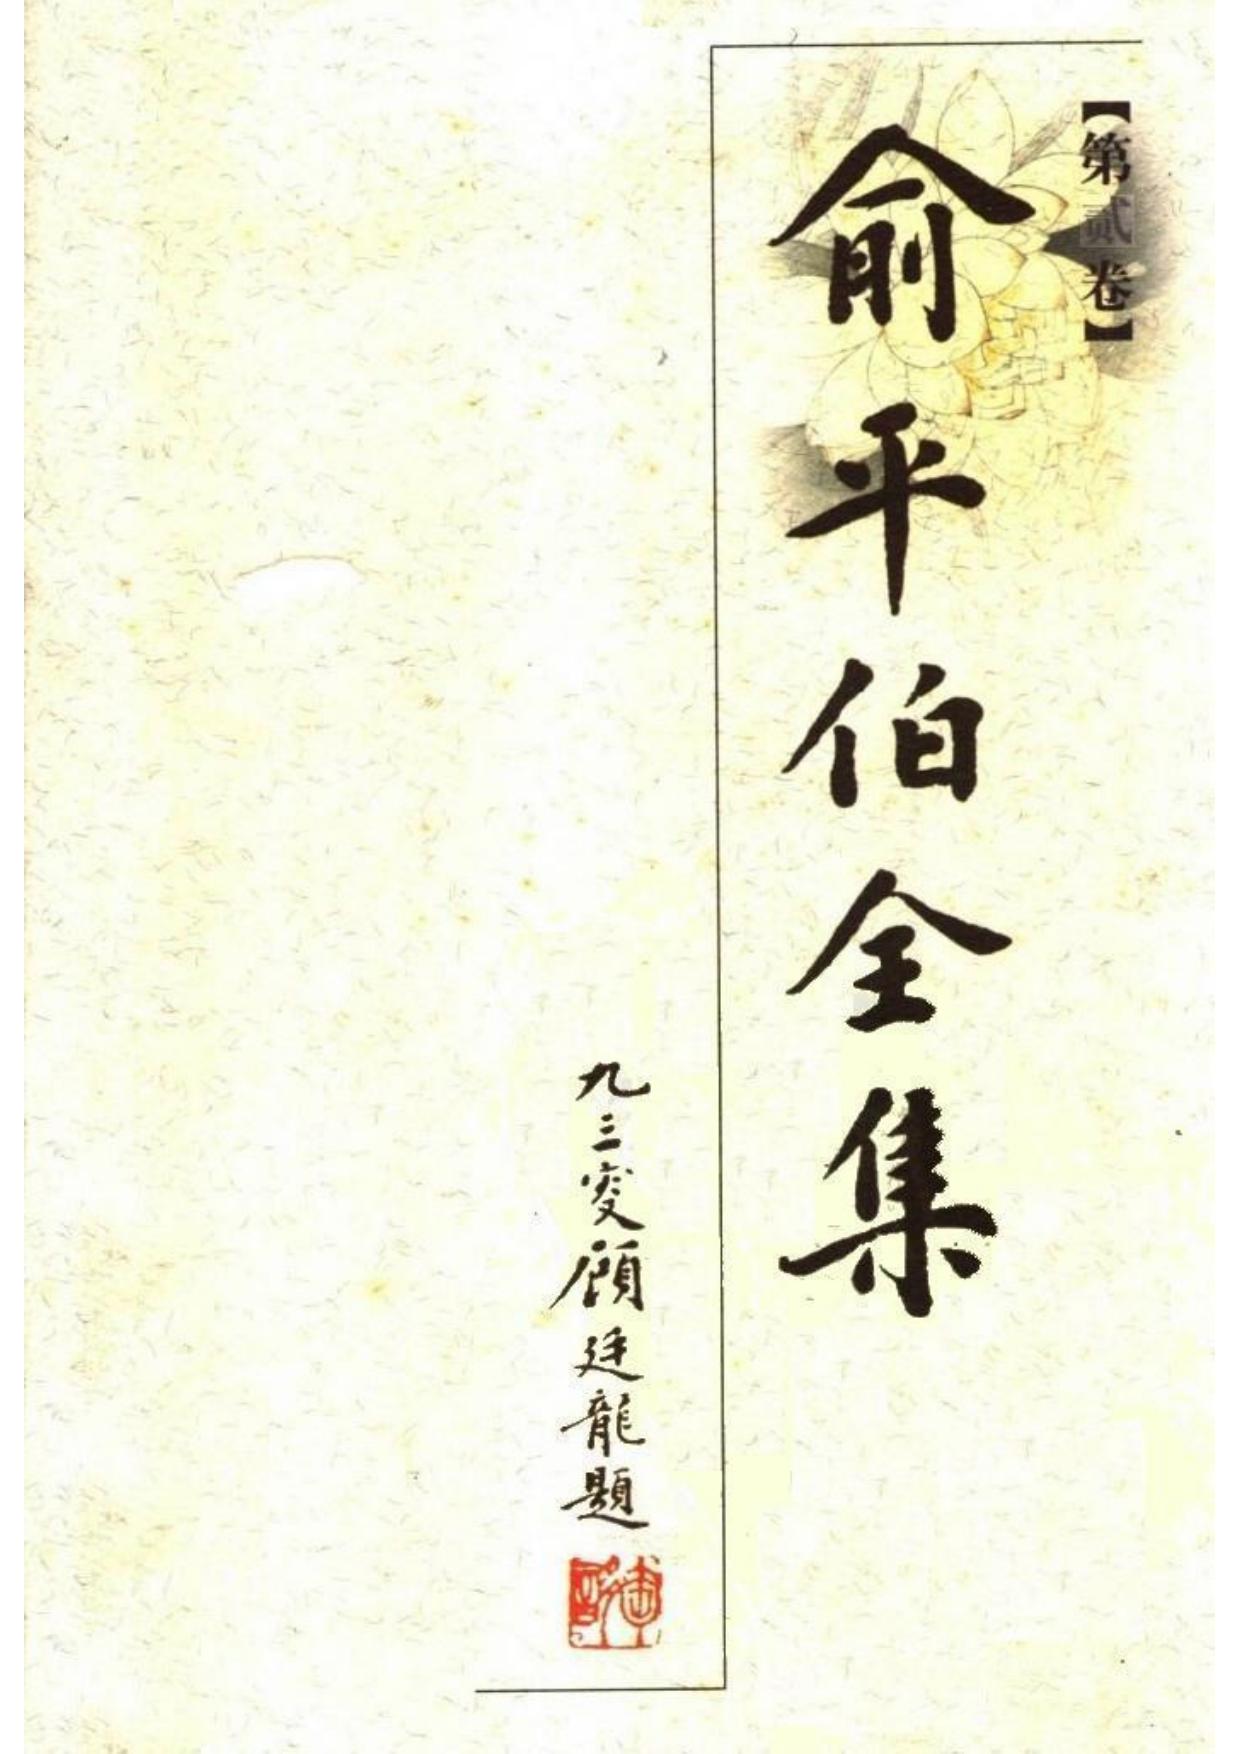 【第贰卷】
俞平伯全集
九三叜顧廷龍題